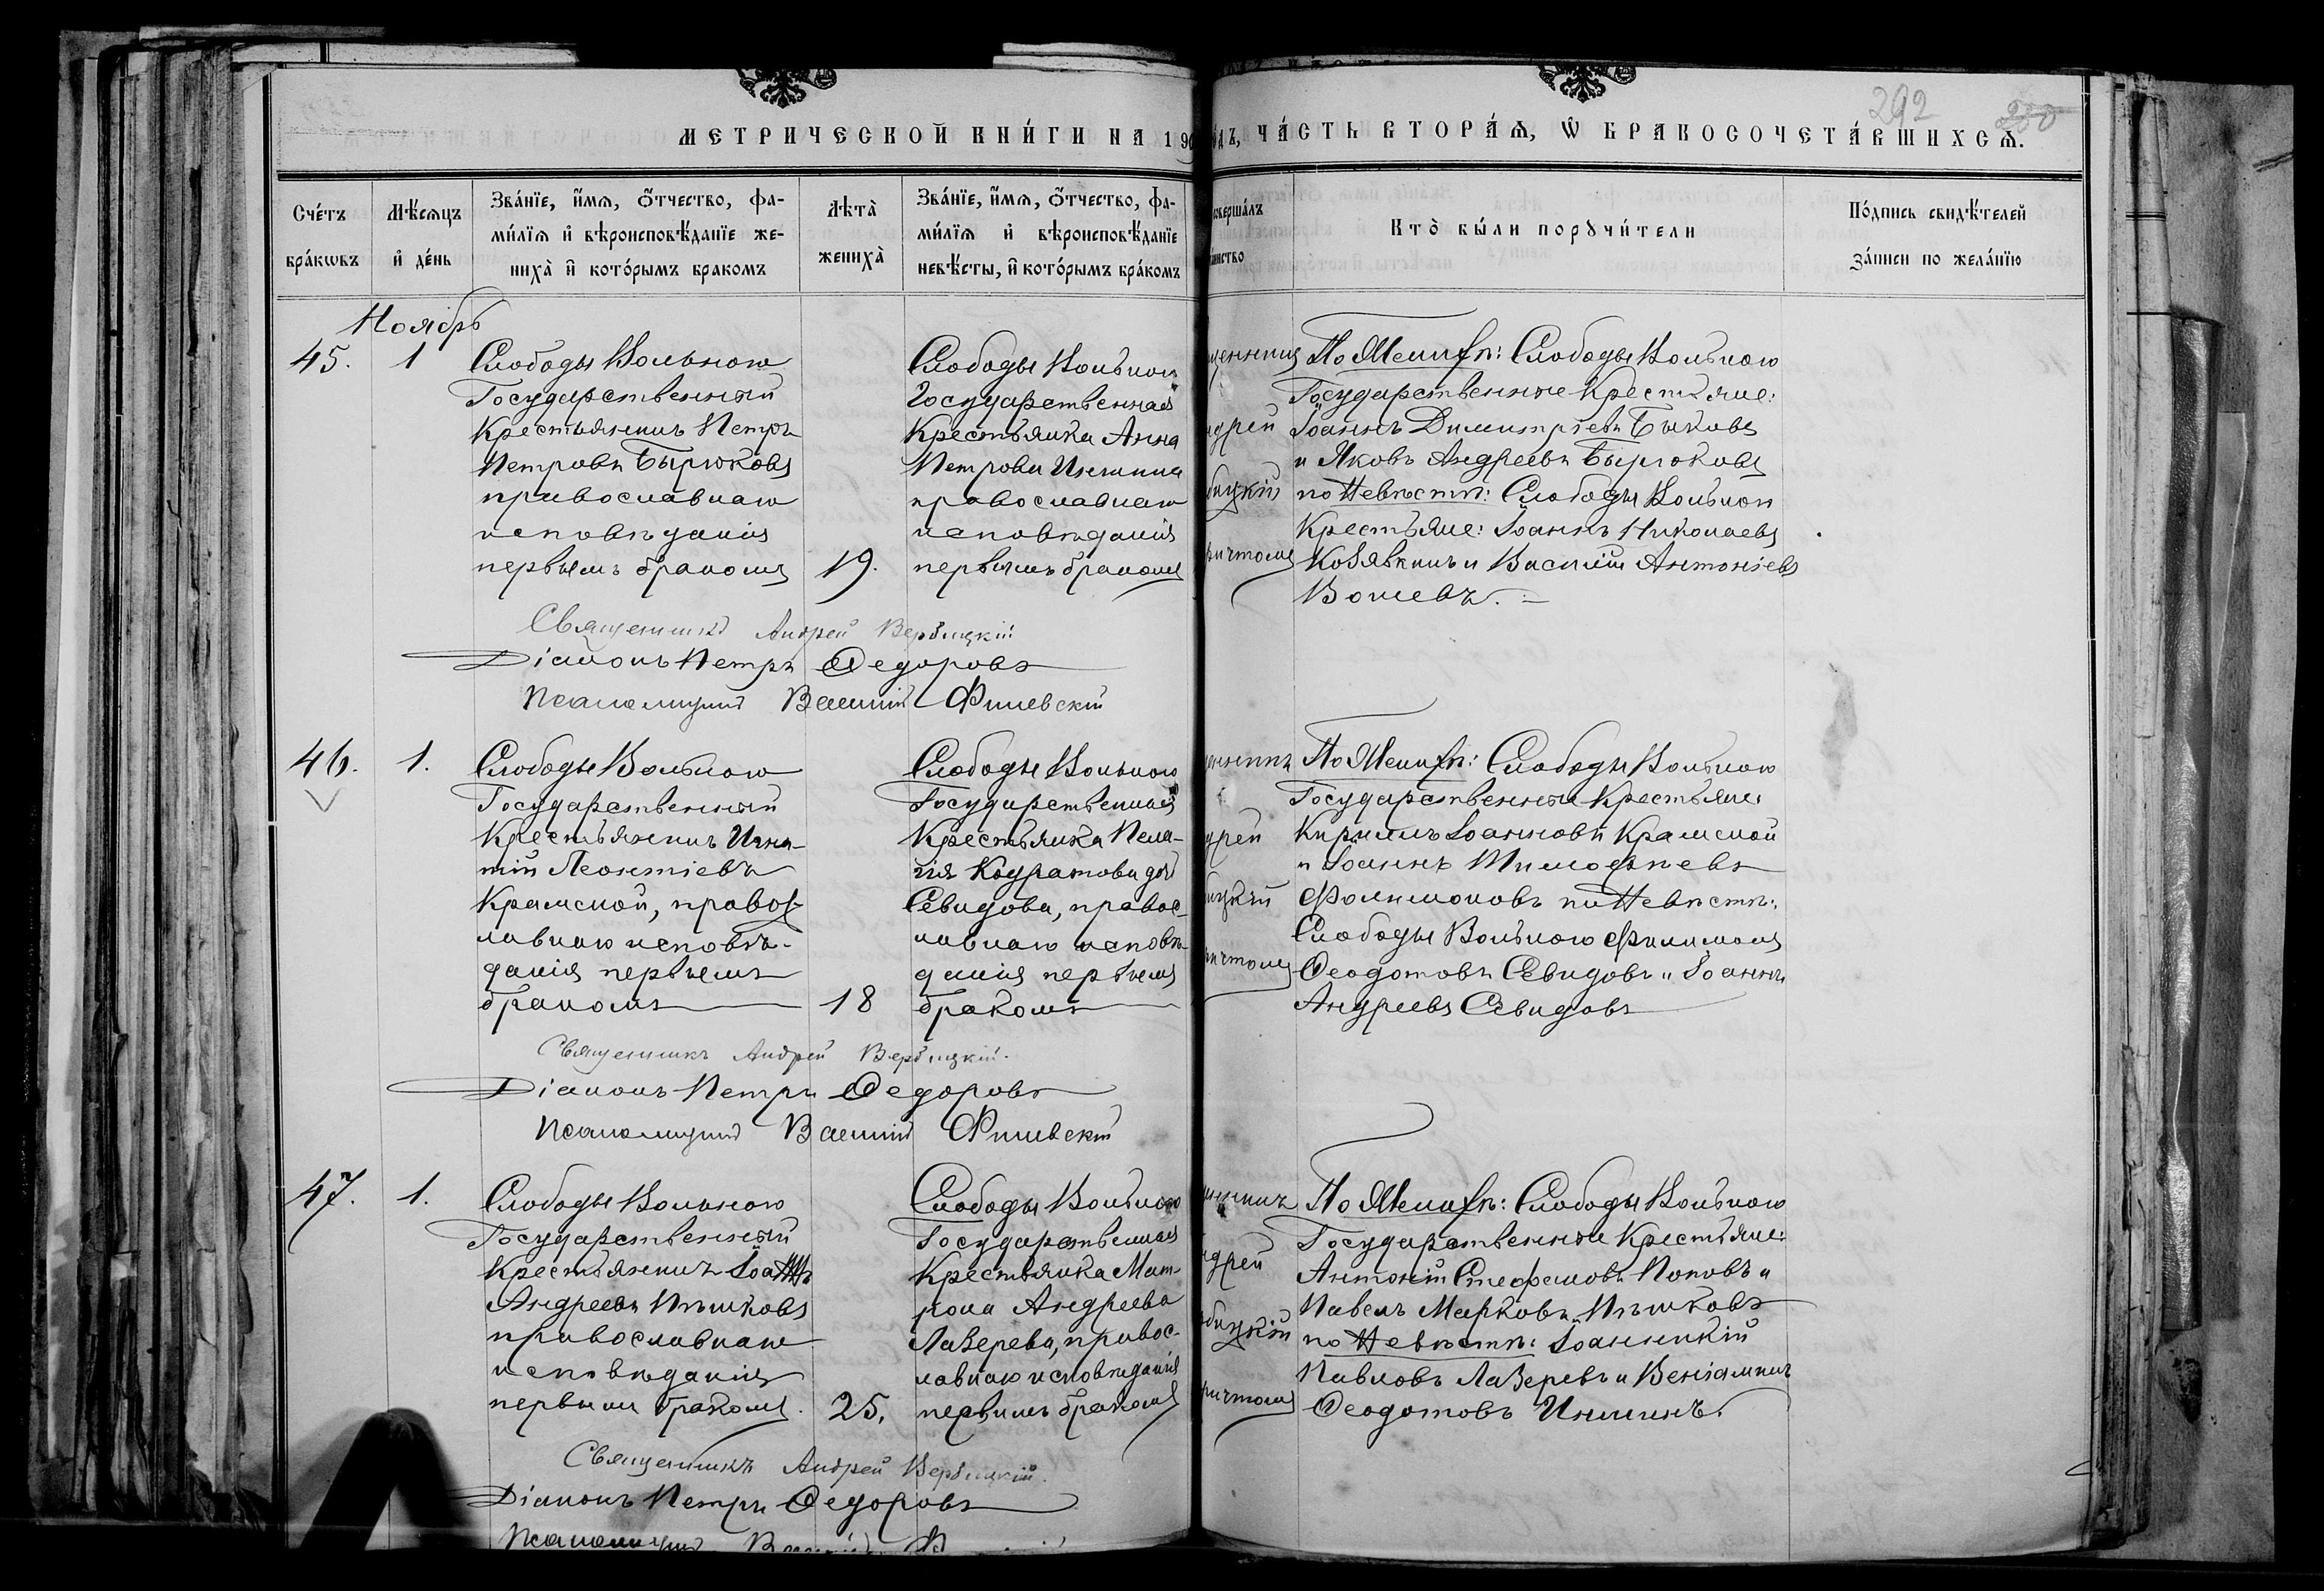 292
МЕТРИЧЕСКОЙ КНИ́ГИ НА 190
ЧА́СТЬ ВТОРА́Ѧ, Ѡ БРАКОСОЧЕТА́ВШИХСѦ.
Сче́тъ
бра́кѡвъ
Мѣ́сѧцъ
и҆ де́нь
Зва́нїе, и҆́мѧ, ѻ҆́тчество, фа-
ми́лїѧ и҆ вѣроисповѣ́данїе же-
ниха̀ и҆ кото́рымъ бракомъ
Лѣта̀
жениха̀
Зва́нїе, и҆́мѧ, ѻ҆́тчество, фа-
ми́лїѧ и҆ вѣроисповѣ́данїе
невѣ́сты, и҆ кото́рымъ бра́комъ
совершáлъ
Кто̀ бы́ли порꙋчи́тели
По́дпись свидѣ́телей
за́писи по жела́нїю
Ноябрь
45.
1
Слободы Вольною
Государственный
Крестьянинъ Петръ
Петровъ Бырюковъ
православнаго
исповѣданія
первымъ бракомъ
19.
Слободы Вольною
Государственная
Крестьянка Анна
Петрова Иншина
православнаго
исповѣданія
первымъ бракомъ
дрей
бицкій
ричтомъ
По Женихѣ: Слободы Вольною
Государственные Крестьяне:
Іоаннъ Димитріевъ Быковъ
и Яковъ Андреевъ Бырюковъ
по Невѣстѣ: Слободы Вольною
Крестьяне: Іоаннъ Николаевъ
Козявкинъ и Василій Антоніевъ
Священникъ Андрей Вербицкій
Діаконъ Петръ Ѳедоровъ
Псаломщикъ Василій Филевскій
46.
1.
Слободы Вольною
Государственный
Крестьянинъ Игна-
тій Леонтіевъ
Крамской, правос-
лавнаго исповѣ-
данія первымъ
бракомъ
18
Слободы Вольною
Государственная
Крестьянка Пела-
гія Кодратова доч
Севидова, правос-
лавнаго исповѣ-
данія первымъ
бракомъ
дрей
ицкій
ричтомъ
По Женихѣ: Слободы Вольною
Государственные Крестьяне:
Кириллъ Іоанновъ Крамской
и Іоаннъ Тимофѣевъ
Филимоновъ по Невѣстѣ:
Слободы Вольною Филимонъ
Ѳеодотовъ Севидовъ и Іоаннъ
Андреевъ Севидовъ
Священникъ Андрей Вербицкій.
Діаконъ Петръ Ѳедоровъ
Псаломщикъ Василій Филевскій
47.
1.
Слободы Вольною
Государственный
Крестьянинъ Іоаннъ
Андреевъ Пѣшковъ
православнаго
исповѣданія
первымъ бракомъ.
25.
Слободы Вольною
Государственная
Крестьянка Мат-
рона Андреева
Лазерева, правос-
лавнаго исповѣданія
первымъ бракомъ
дрей
бицкій
ричтомъ
По Женихѣ: Слободы Вольною
Государственные Крестьяне:
Антоній Стефановъ Поповъ и
Павелъ Марковъ Пѣшковъ
по Невѣстѣ: Іоанникій
Павловъ Лазеревъ и Веніаминъ
Ѳеодотовъ Иншинъ.
Священникъ Андрей Вербицкій.
Діаконъ Петръ Ѳедоровъ
Псаломщикъ